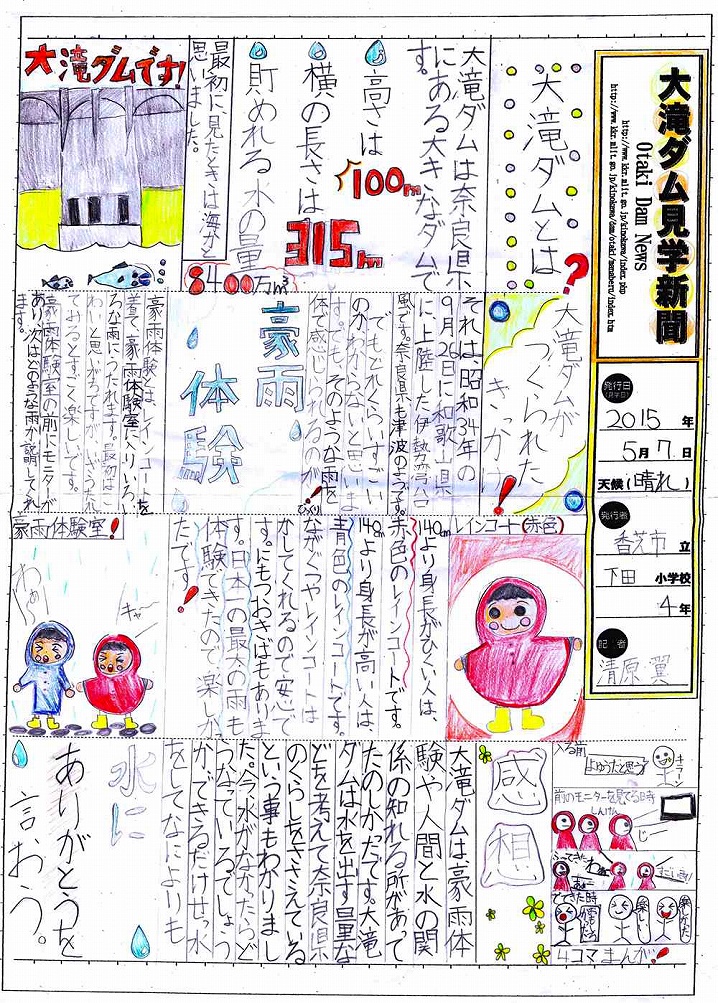 大滝ダム見学新聞
Otaki Dam News
http://www.kkr.mlit.go.jp/kinokawa/index.php
発行日
2015年
5月7日
天候(晴れ)
発行者
香芝市立
下田小学校
4年
記者
清原 翼
大滝ダムとは?
大滝ダムは奈良県
にある大きなダムで
す。
高さは
100m
横の長さは
315m
貯められる水の量
8400万m³
最初に見たときは海かと
思いました。
大滝ダムです!
大滝ダムが
つくられた
きっかけ!
それは、昭和34年の
9月26日に和歌山県
に上陸した伊勢湾台
風です。奈良県も津波のようです。
でもどれくらいすごい
のかわからないと思いま
す。でも、そのような雨を
体で感じられるのが
びっくり!
豪雨
体験
豪雨体験とは、レインコートを
着て、豪雨体験室に入りいろい
ろな雨にうたれます。最初はこ
わいと思いがちですが、いざうたれ
てみるとすごく楽しいです。
豪雨体験室の前にモニタが
あり次はどのような雨か説明してくれ
ます。
レインコート(赤色)
140mより身長がひくい人は、
赤色のレインコートです。
140mより身長が高い人は、
青色のレインコートです。
ながぐつやレインコートは
かしてくれるので安心で
す。にもつおきばもありま
す。日本一の最大の雨も
体験できたので楽しか
たです!
豪雨体験室!
わぁ
キャー
入る前
よゆうだと思う
キラーン
前のモニターを見てる時
しんけん
じー
すごいな
でてきた時
楽しかった
4コマまんが!
感想
大滝ダムは、豪雨体
験や人間と水の関
係の知れる所があっ
たのかだです。大滝
ダムは水を出す量な
どを考えて奈良県
のくらしをささえている
という事もわかりまし
た。今、水がなかたらど
うなっているでしょう
か。できるだけせっ水
をしてなによりも
水に
ありがとうを
言おう。